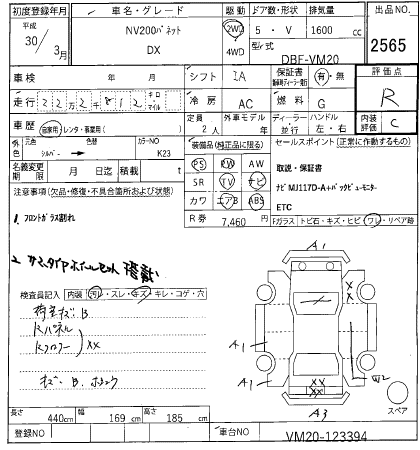 初度登録年月 車名・グレード 駆動 ドア数・形状 排気量 出品NO.
平成 30/3月 NV200バネット DX 2WD 4WD 5・V 1600cc 2565
型式 DBF-VM20
車検 年 月 シフト IA 保証書 有・無 評価点
走行 22万2千812 キロ マイル 冷房 AC 燃料 G R
車歴 自家用・レンタ・事業用( ) 定員 2人 外車モデル 年 ディーラー・並行 ハンドル 左・右 内装評価 C
外色 シルバー 色替 カラーNO K23 装備品(純正品に限る) セールスポイント(正常に作動するもの)
名義変更期限 月 日迄 積載 t PS PW AW 取説・保証書
注意事項(欠品・修復・不具合箇所および状態) SR TV ナビ ナビMJ117D-A+バックビューモニター
1. フロントガラス割れ カワ エアB ABS ETC
R券 7,460 円 Fガラス トビ石・キズ・ヒビ・ワレ・リペア跡
2
検査員記入 内装 汚れ・スレ・キズ・キレ・コゲ・穴
荷室キズB
Rパネル
Rフロアー XX
キズ・B
A1
XX
A1
A1
W2
XX
XX
A3
スペア
長さ 440cm 幅 169cm 高さ 185cm
登録NO 車台NO VM20-123394